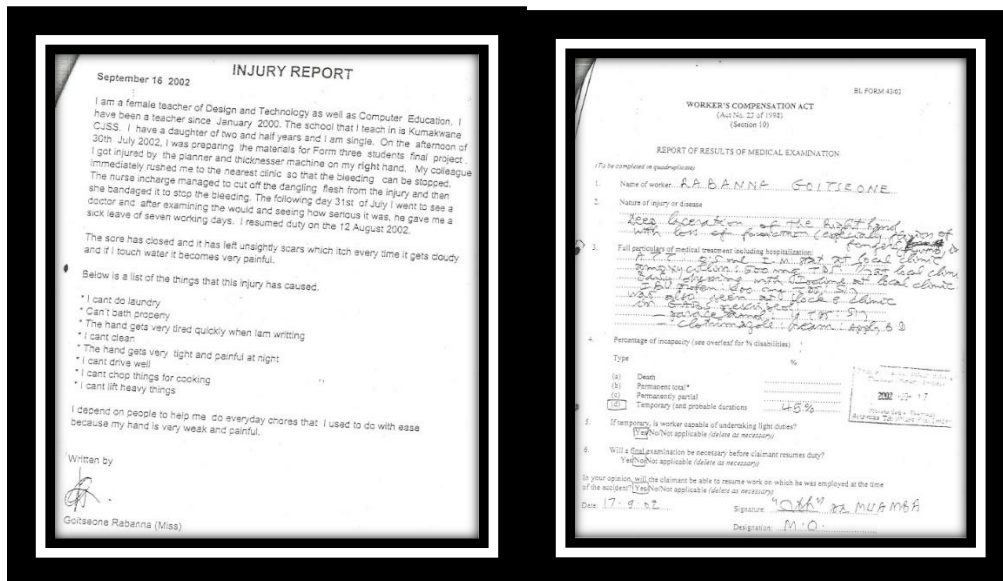 INJURY REPORT
September 16 2002
I am a female teacher of Design and Technology as well as Computer Education. I
have been a teacher since January 2000. The school that I teach in is Kumakwane
CJSS. I have a daughter of two and half years and I am single. On the afternoon of
30th July 2002, I was preparing the materials for Form three students final project.
I got injured by the planner and thicknesser machine on my right hand. My colleague
immediately rushed me to the nearest clinic so that the bleeding can be stopped.
The nurse incharge managed to cut off the dangling flesh from the injury and then
she bandaged it to stop the bleeding. The following day 31st of July I went to see a
doctor and after examining the would and seeing how serious it was, he gave me a
sick leave of seven working days. I resumed duty on the 12 August 2002.
The sore has closed and it has left unsightly scars which itch every time it gets cloudy
and if I touch water it becomes very painful.
Below is a list of the things that this injury has caused.
* I cant do laundry
* Can't bath properly
* The hand gets very tired quickly when Iam writting
* I cant clean
* The hand gets very tight and painful at night
* I cant drive well
* I cant chop things for cooking
* I cant lift heavy things
I depend on people to help me do everyday chores that I used to do with ease
because my hand is very weak and painful.
Written by
Goitseone Rabanna (Miss)
BL FORM 43/03
WORKER'S COMPENSATION ACT
(Act No. 23 of 1998)
(Section 10)
REPORT OF RESULTS OF MEDICAL EXAMINATION
(To be completed in quadruplicate)
1. Name of worker RABANNA GOITSEONE
2. Nature of injury or disease
Deep laceration of the Right hand
with loss of function (especially flexion of
3. Full particulars of medical treatment including hospitalization:
0.5 ml I.M stat at local clinic
500 mg TDS at local clinic
Daily dressing with Iodine at local clinic
was also seen at
- paracetamol
- Clotrimazole cream apply BD
4. Percentage of incapacity (see overleaf for % disabilities)
Type %
(a) Death
(b) Permanent total*
(c) Permanently partial
(d) Temporary (and probable durations 45%
2002
5. If temporary, is worker capable of undertaking light duties?
Yes/No/Not applicable (delete as necessary)
6. Will a final examination be necessary before claimant resumes duty?
Yes/No/Not applicable (delete as necessary)
In your opinion, will the claimant be able to resume work on which he was employed at the time
of the accident? Yes/No/Not applicable (delete as necessary)
Date: 17.9.02 Signature: DR MUAMBA
Designation: M.O.